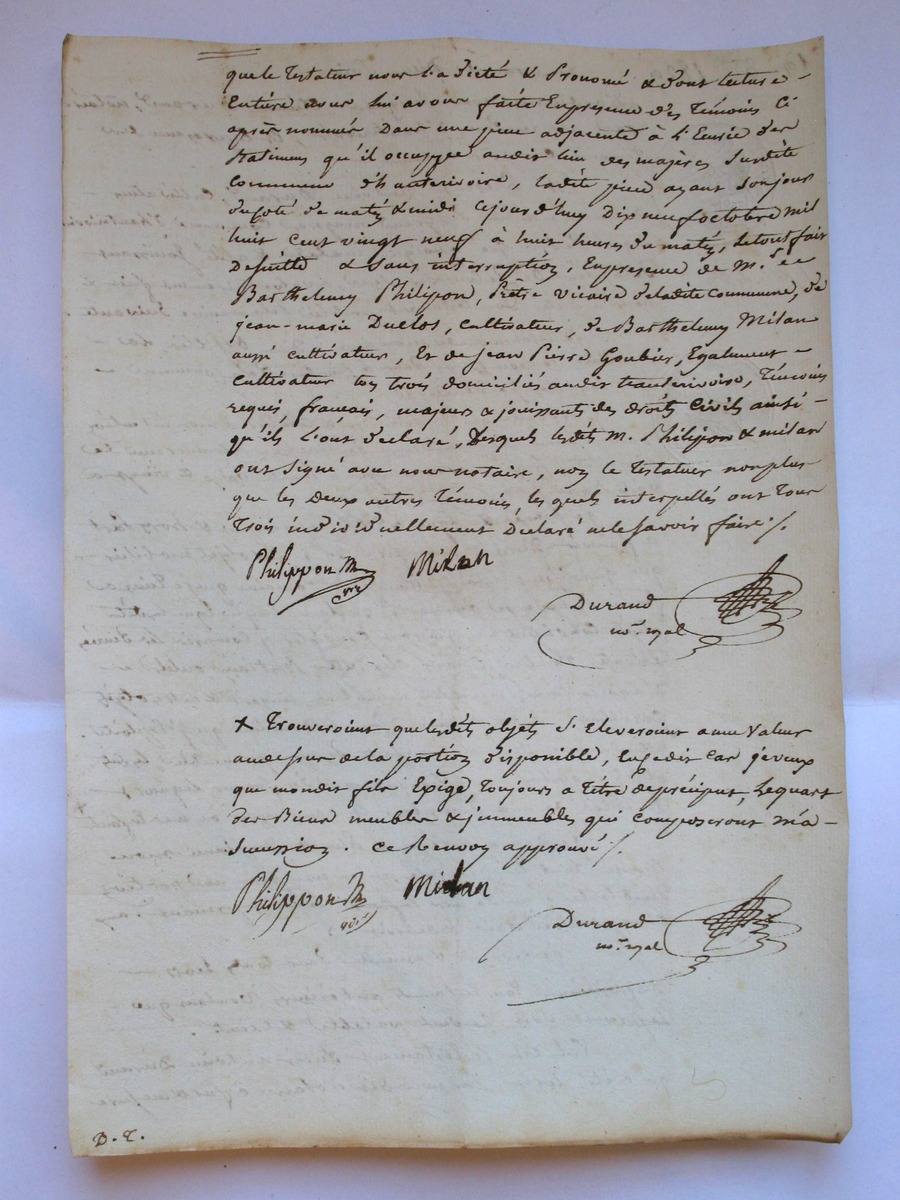 que le Testateur nous l'a dicté & Prononcé & dont lecture
Entière nous lui avons faite En presence des Témoins Ci
après nommés Dans une pièce adjacente à l'Ecurie des
Batimens qu'il occuppe audit lieu des majères Susdite
Commune d'hauterivoire, ladite pièce ayant Son jour
du coté de matin & midi Cejourd'huy Dix neuf octobre mil
huit Cent vingt neuf à huit heures du matin, le tout fait
De suitte & Sans interruption, En presence de M.
Barthelemy Philipon, Prêtre Vicaire de ladite Commune, de
jean-marie Duclos, Cultivateur, de Barthelemy Milan
aussi Cultivateur, Et de jean Pierre Goubier, Egalement
Cultivateur tous trois domiciliés audit hauterivoire, Témoins
requis, français, majeurs & jouissants des droits Civils ainsi
qu'ils l'ont déclaré, Desquels lesdits M. Philipon & milan
ont Signé avec nous notaire, non le Testateur non plus
que les Deux autres Témoins, les quels interpellés ont Tous
Trois individuellement Déclaré ne le Savoir faire ./.
Philippon Milan
Durand
no.re royal
+ Trouveroient que lesdits objets S'eleveroient a une Valeur
au dessus de la portion disponible, En ce dit Cas je veux
que mon dit fils Exige, Toujours a Titre de préciput, Le quart
des Biens meubles & immeubles qui Composeront ma
Succession. Ce Renvoy approuvé ./.
Philippon Milan
Durand
no.re royal
D. T.